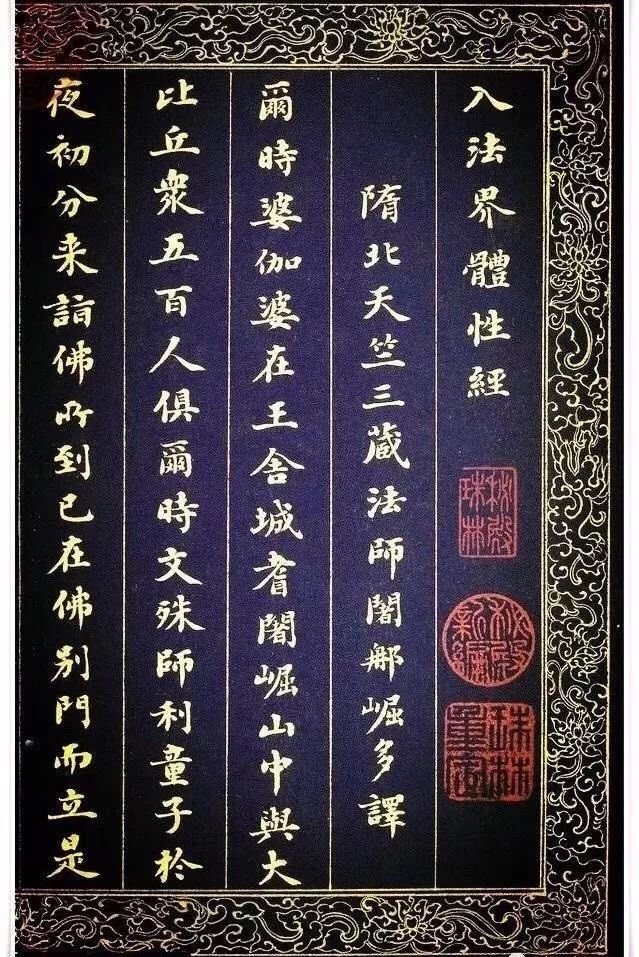 入法界體性經
隋北天竺三藏法師闍那崛多譯
爾時婆伽婆在王舍城耆闍崛山中與大
比丘衆五百人俱爾時文殊師利童子於
夜初分来詣佛所到已在佛别門而立是
秘殿珠林
珠林重定